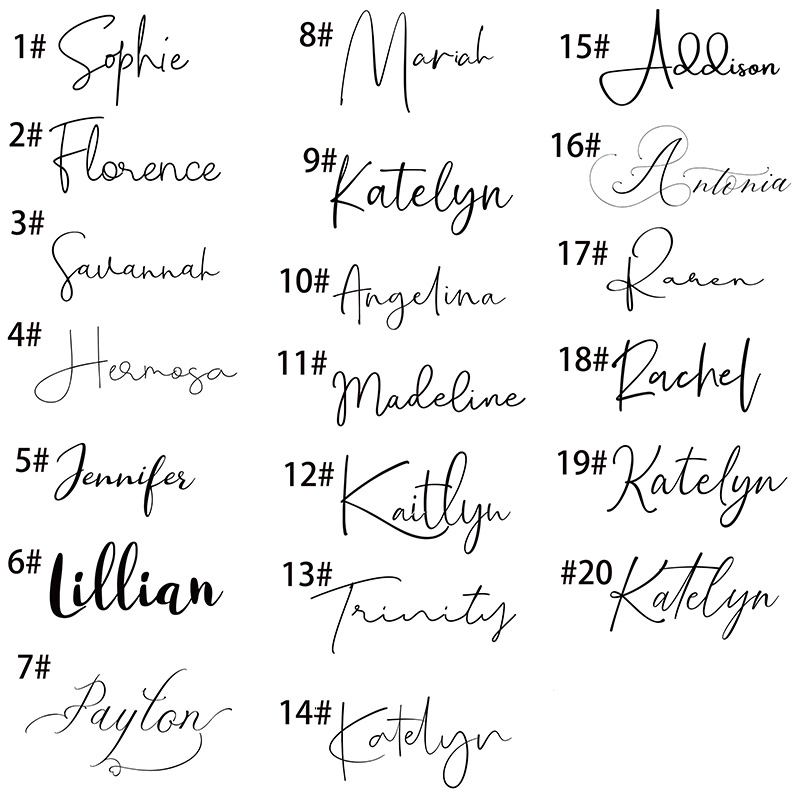 1# Sophie
2# Florence
3# Savannah
4# Hermosa
5# Jennifer
6# Lillian
7# Payton
8# Mariah
9# Katelyn
10# Angelina
11# Madeline
12# Kaitlyn
13# Trinity
14# Katelyn
15# Addison
16# Antonia
17# Raren
18# Rachel
19# Katelyn
#20 Katelyn